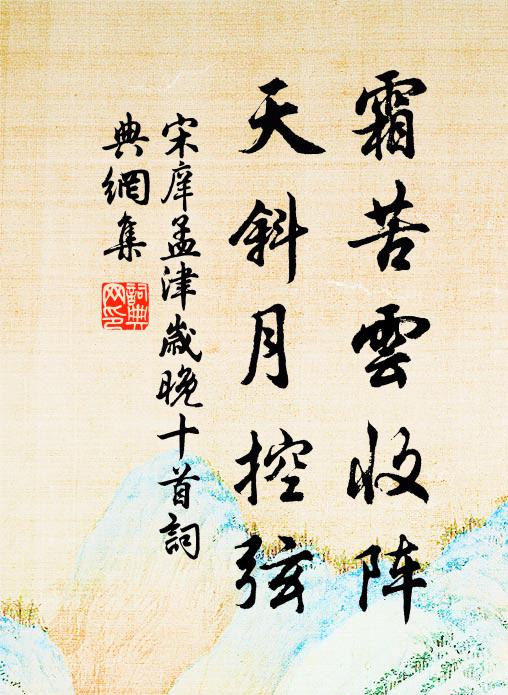 霜苦雲收阵
天斜月控弦
宋庠孟津歲晚十首詞
典網集
詞典
网印